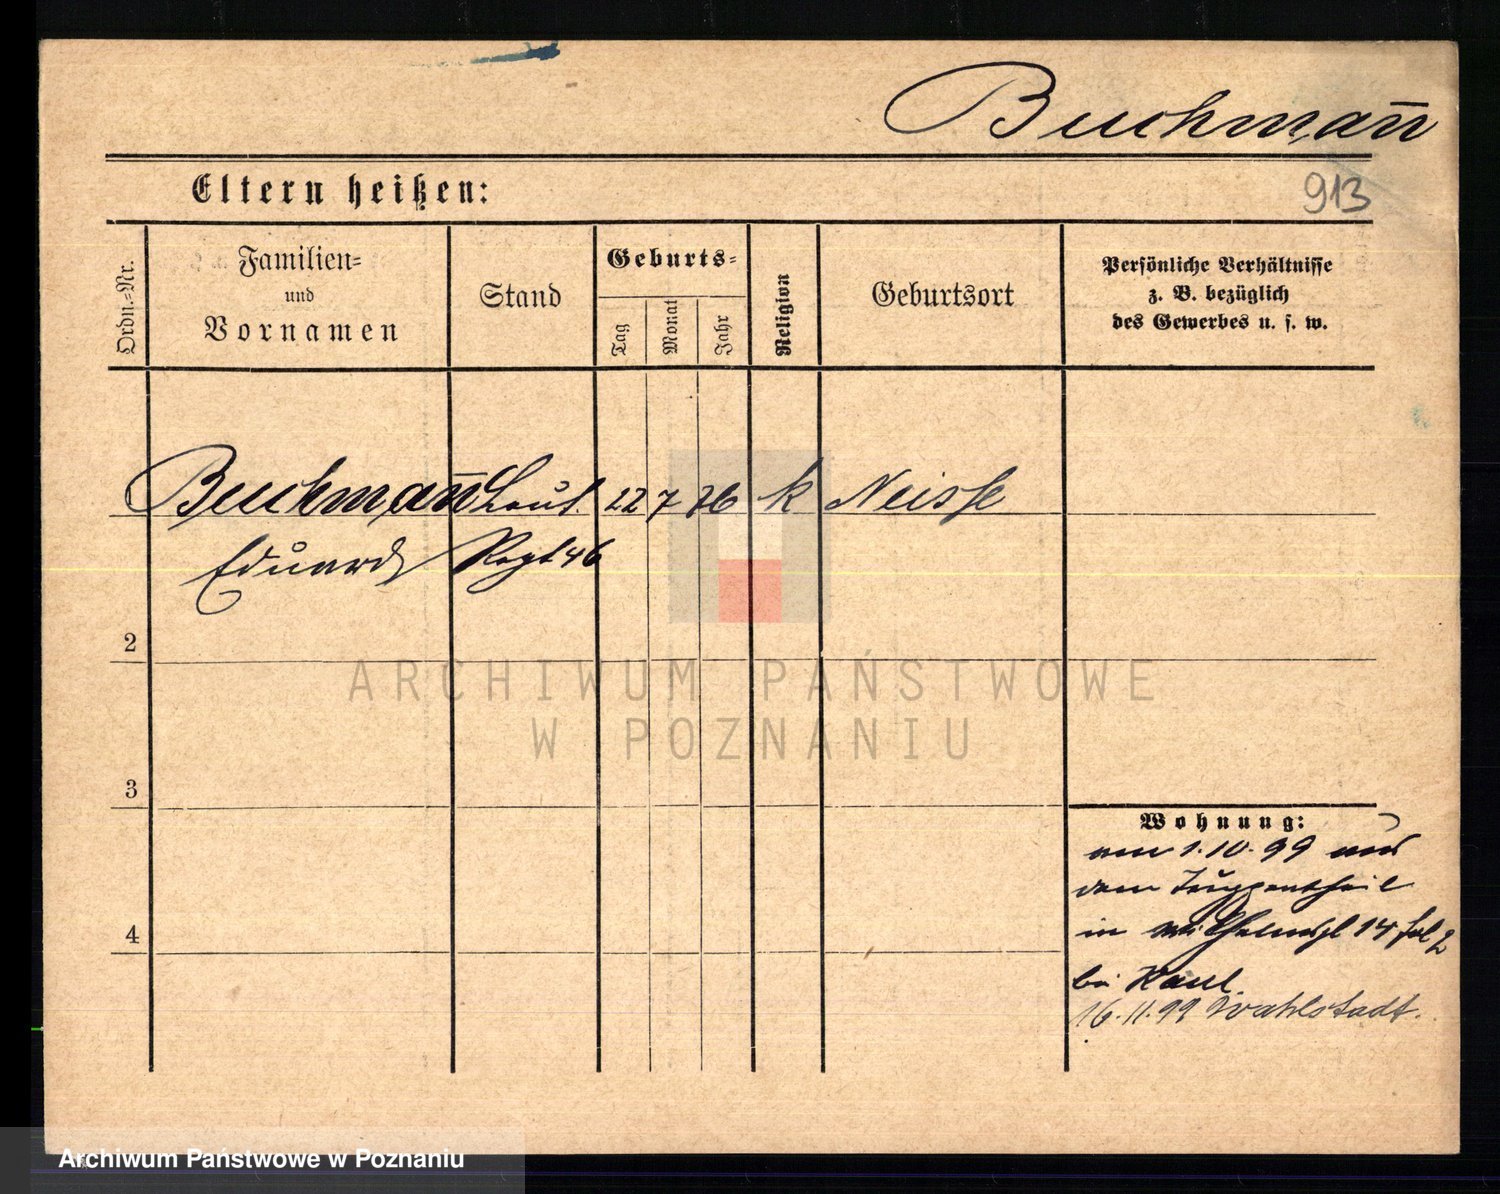 Buchman̄
Eltern heißen:
913
Ordn.=Nr.
Familien=
und
Vornamen
Stand
Geburts=
Tag
Monat
Jahr
Religion
Geburtsort
Persönliche Verhältnisse
z. B. bezüglich
des Gewerbes u. s. w.
Buchman̄ Leut. 22 7 76 k Neisse
Eduard Regt 46
2
ARCHIWUM PAŃSTWOWE
W POZNANIU
3
Wohnung:
am 1.10.99 aus
dem Truppentheil
in 14
4
bei
16.11.99 Wahlstadt.
Archiwum Państwowe w Poznaniu